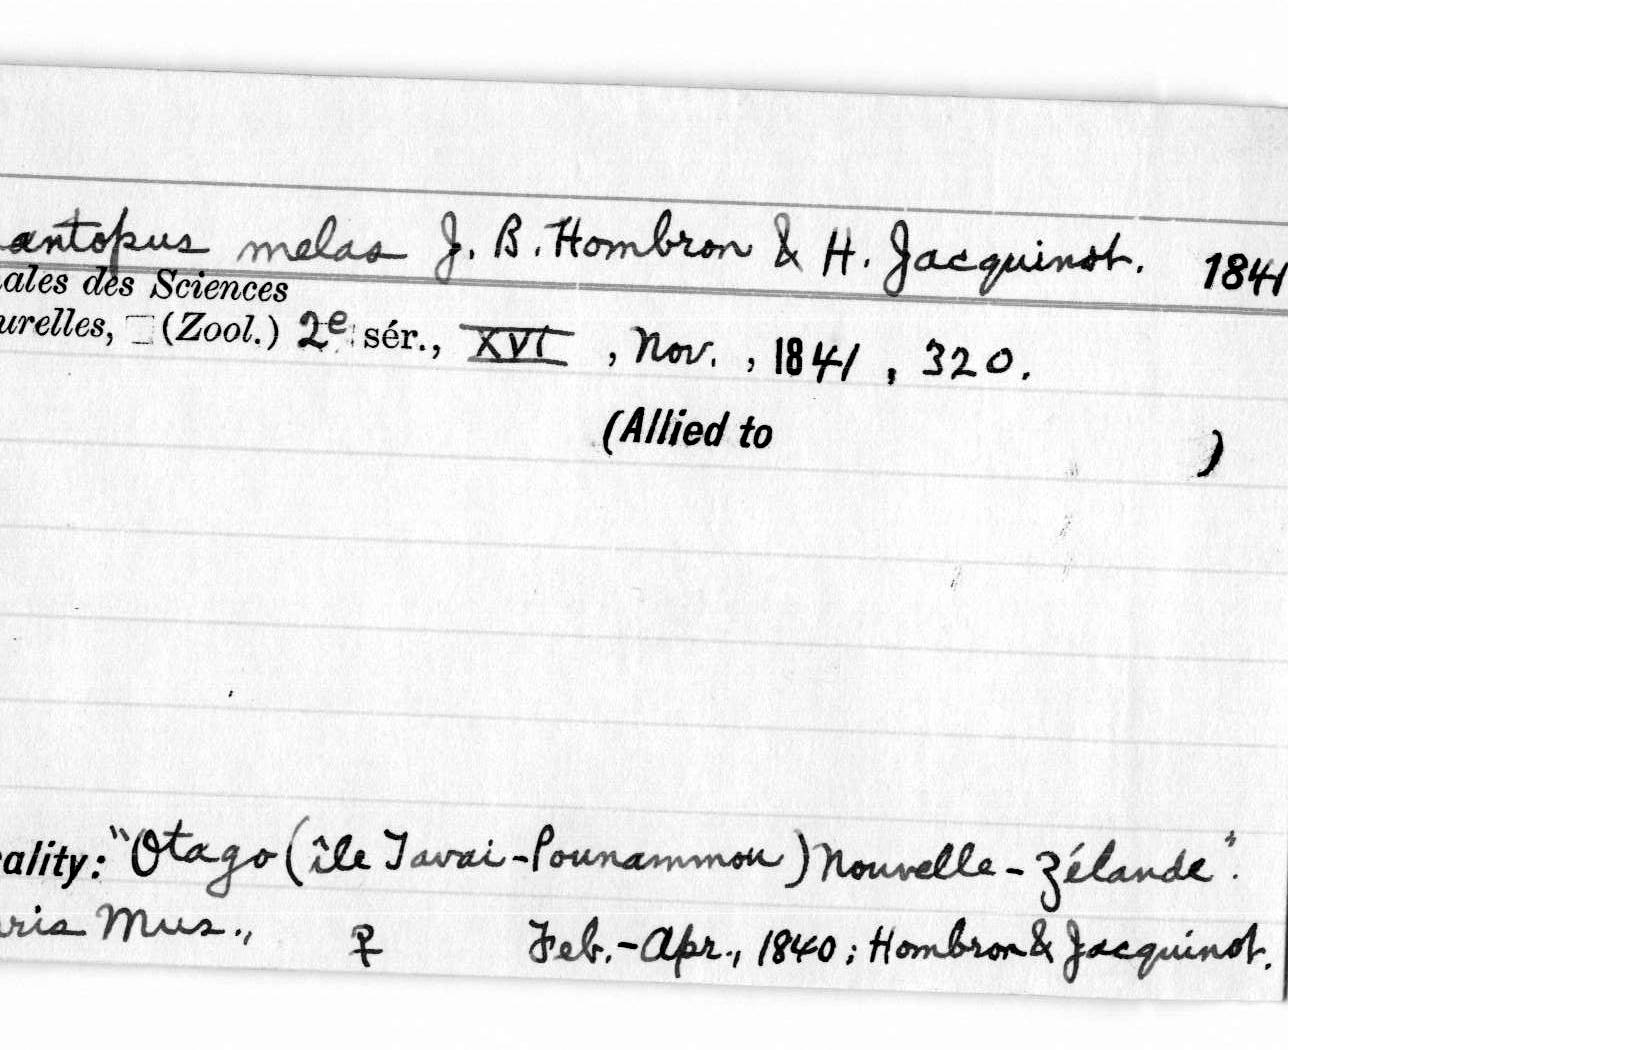 antopus melas J. B. Hombron & H. Jacquinot. 1841
ales des Sciences
urelles, (Zool.) 2e sér., XVI , Nov. , 1841 , 320.
(Allied to )
ality: "Otago (île Tavai-Pounammou) Nouvelle-Zélande".
ris Mus., ♀ Feb.-Apr., 1840; Hombron & Jacquinot.